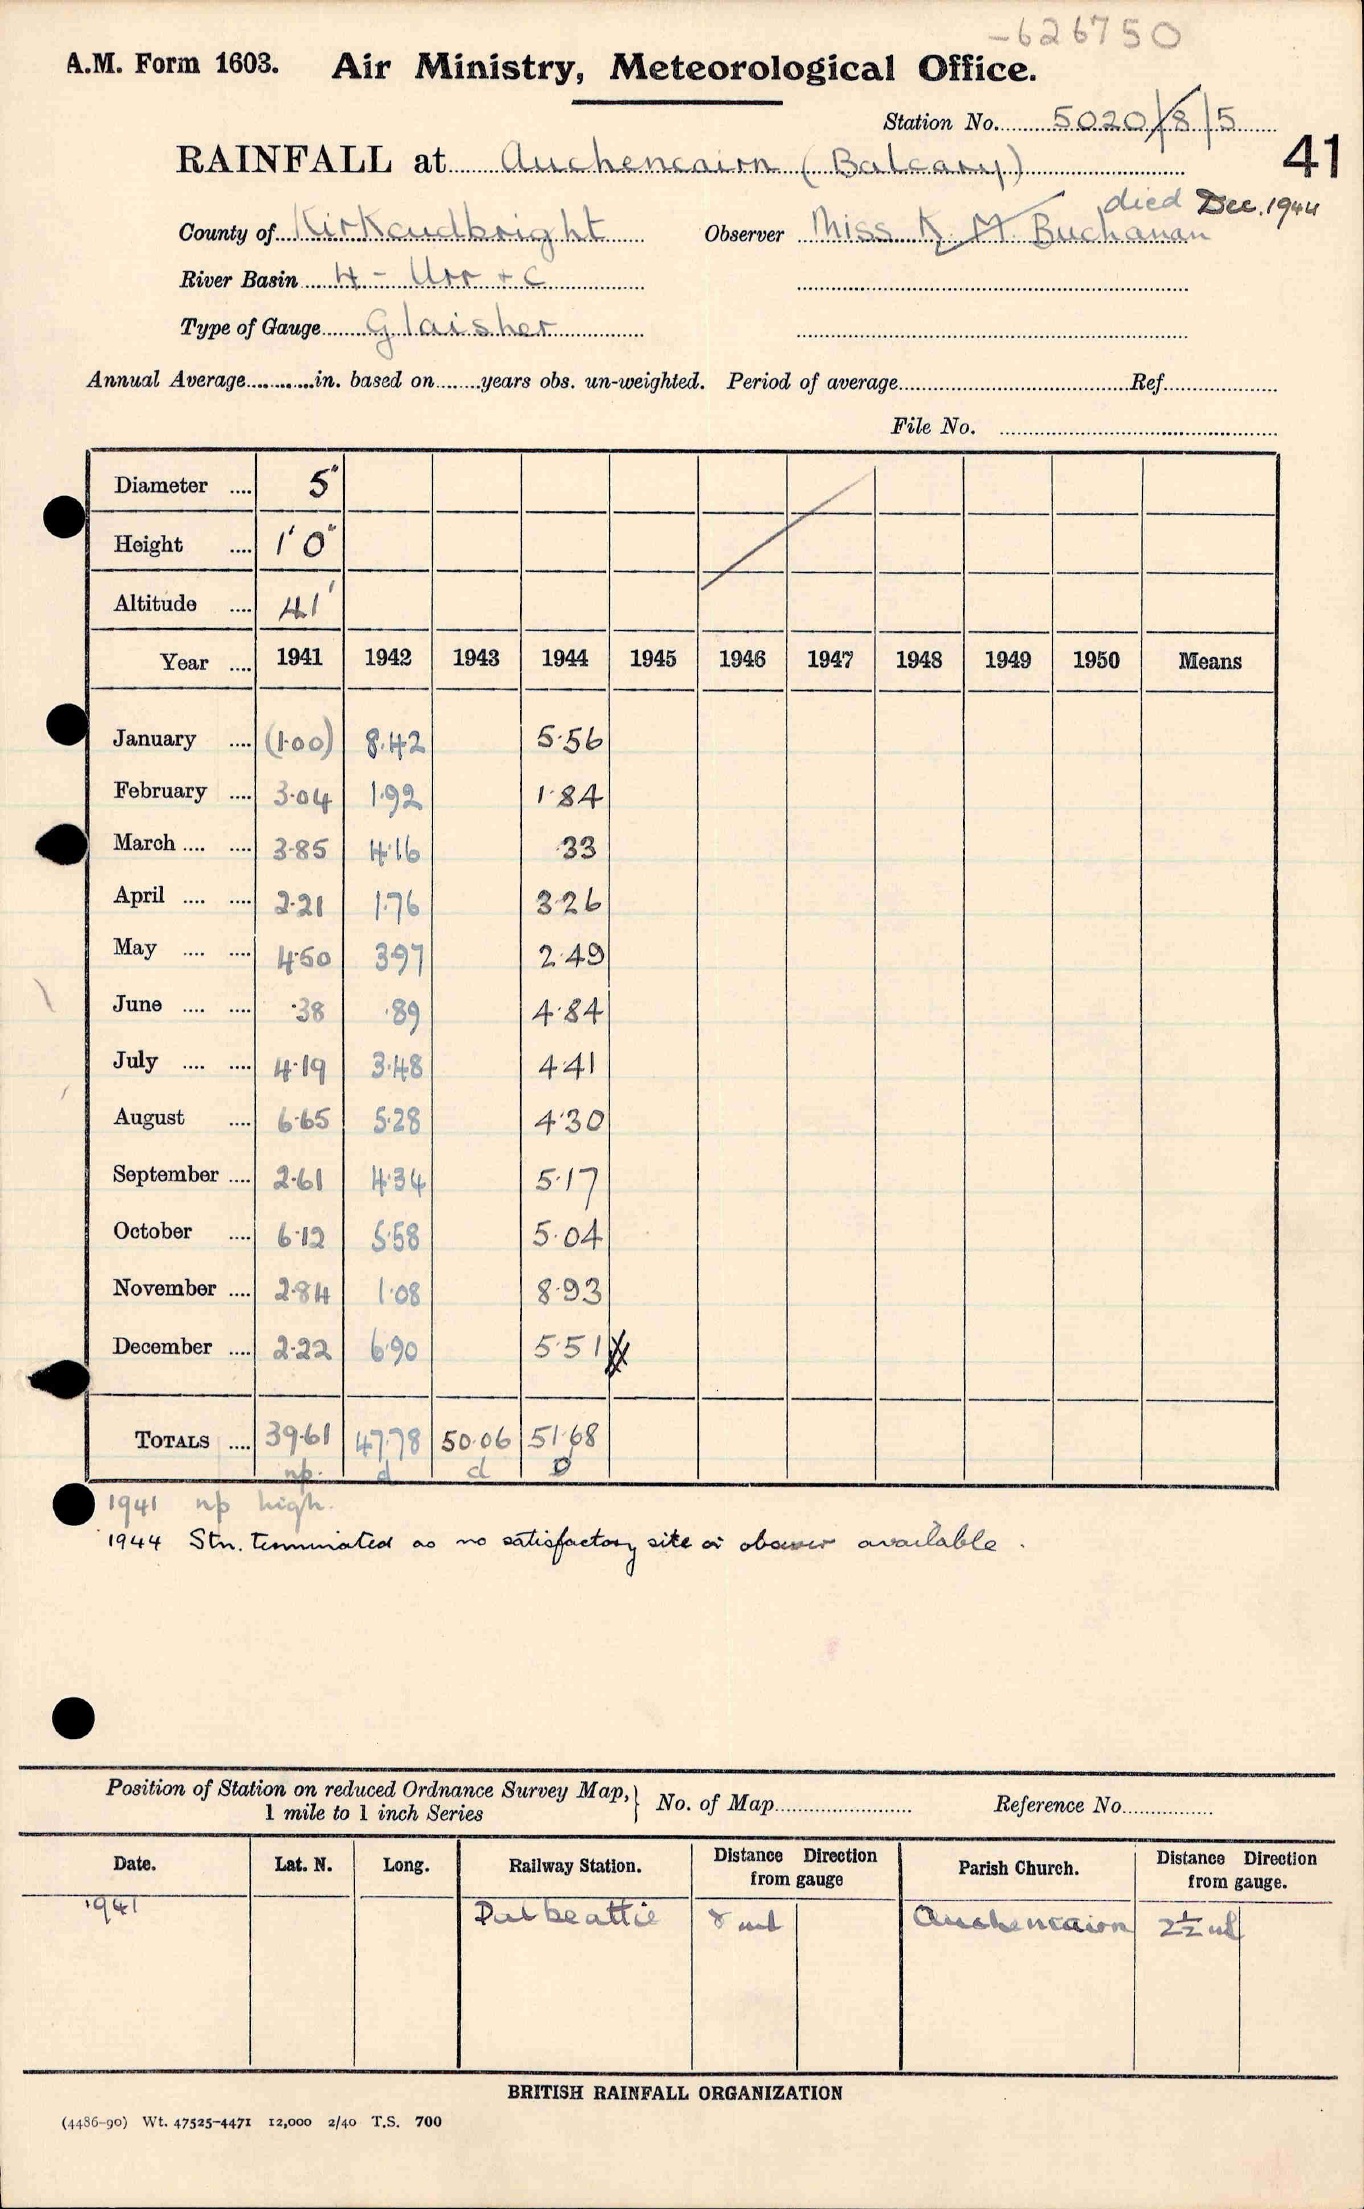 -626750
A.M. Form 1603. Air Ministry, Meteorological Office.
Station No. 5020/8/5
41
RAINFALL at Auchencairn (Balcary)
died Dec. 1944
County of Kirkcudbright Observer Miss K M Buchanan
River Basin 4 - Urr + C
Type of Gauge Glaisher
Annual Average............in. based on........years obs. un-weighted. Period of average........ Ref........
File No. ........
Diameter .... 5"
Height .... 1' 0"
Altitude .... 41'
Year .... 1941 1942 1943 1944 1945 1946 1947 1948 1949 1950 Means
January .... (1.00) 8.42 5.56
February .... 3.04 1.92 1.84
March .... .... 3.85 4.16 .33
April .... .... 2.21 1.76 3.26
May .... .... 4.50 3.97 2.49
June .... .... .38 .89 4.84
July .... .... 4.19 3.48 4.41
August .... 6.65 5.28 4.30
September .... 2.61 4.34 5.17
October .... 6.12 5.58 5.04
November .... 2.84 1.08 8.93
December .... 2.22 6.90 5.51
TOTALS .... 39.61 47.78 50.06 51.68
np. d d D
1941 np high.
1944 Stn. terminated as no satisfactory site or observer available.
Position of Station on reduced Ordnance Survey Map, } No. of Map........ Reference No........
1 mile to 1 inch Series
Date. Lat. N. Long. Railway Station. Distance Direction from gauge Parish Church. Distance Direction from gauge.
1941 Dalbeattie 8 ml Auchencairn 2½ ml
BRITISH RAINFALL ORGANIZATION
(4486-90) Wt. 47525-4471 12,000 2/40 T.S. 700